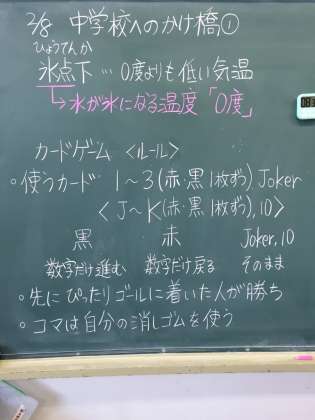 2/8 中学校へのかけ橋①
ひょうてんか
氷点下…0度よりも低い気温
↳水が氷になる温度「0度」
カードゲーム <ルール>
○使うカード 1~3(赤・黒1枚ずつ) Joker
<J~K(赤・黒1枚ずつ),10>
黒 赤 Joker,10
数字だけ進む 数字だけ戻る そのまま
○先にぴったりゴールに着いた人が勝ち
○コマは自分の消しゴムを使う